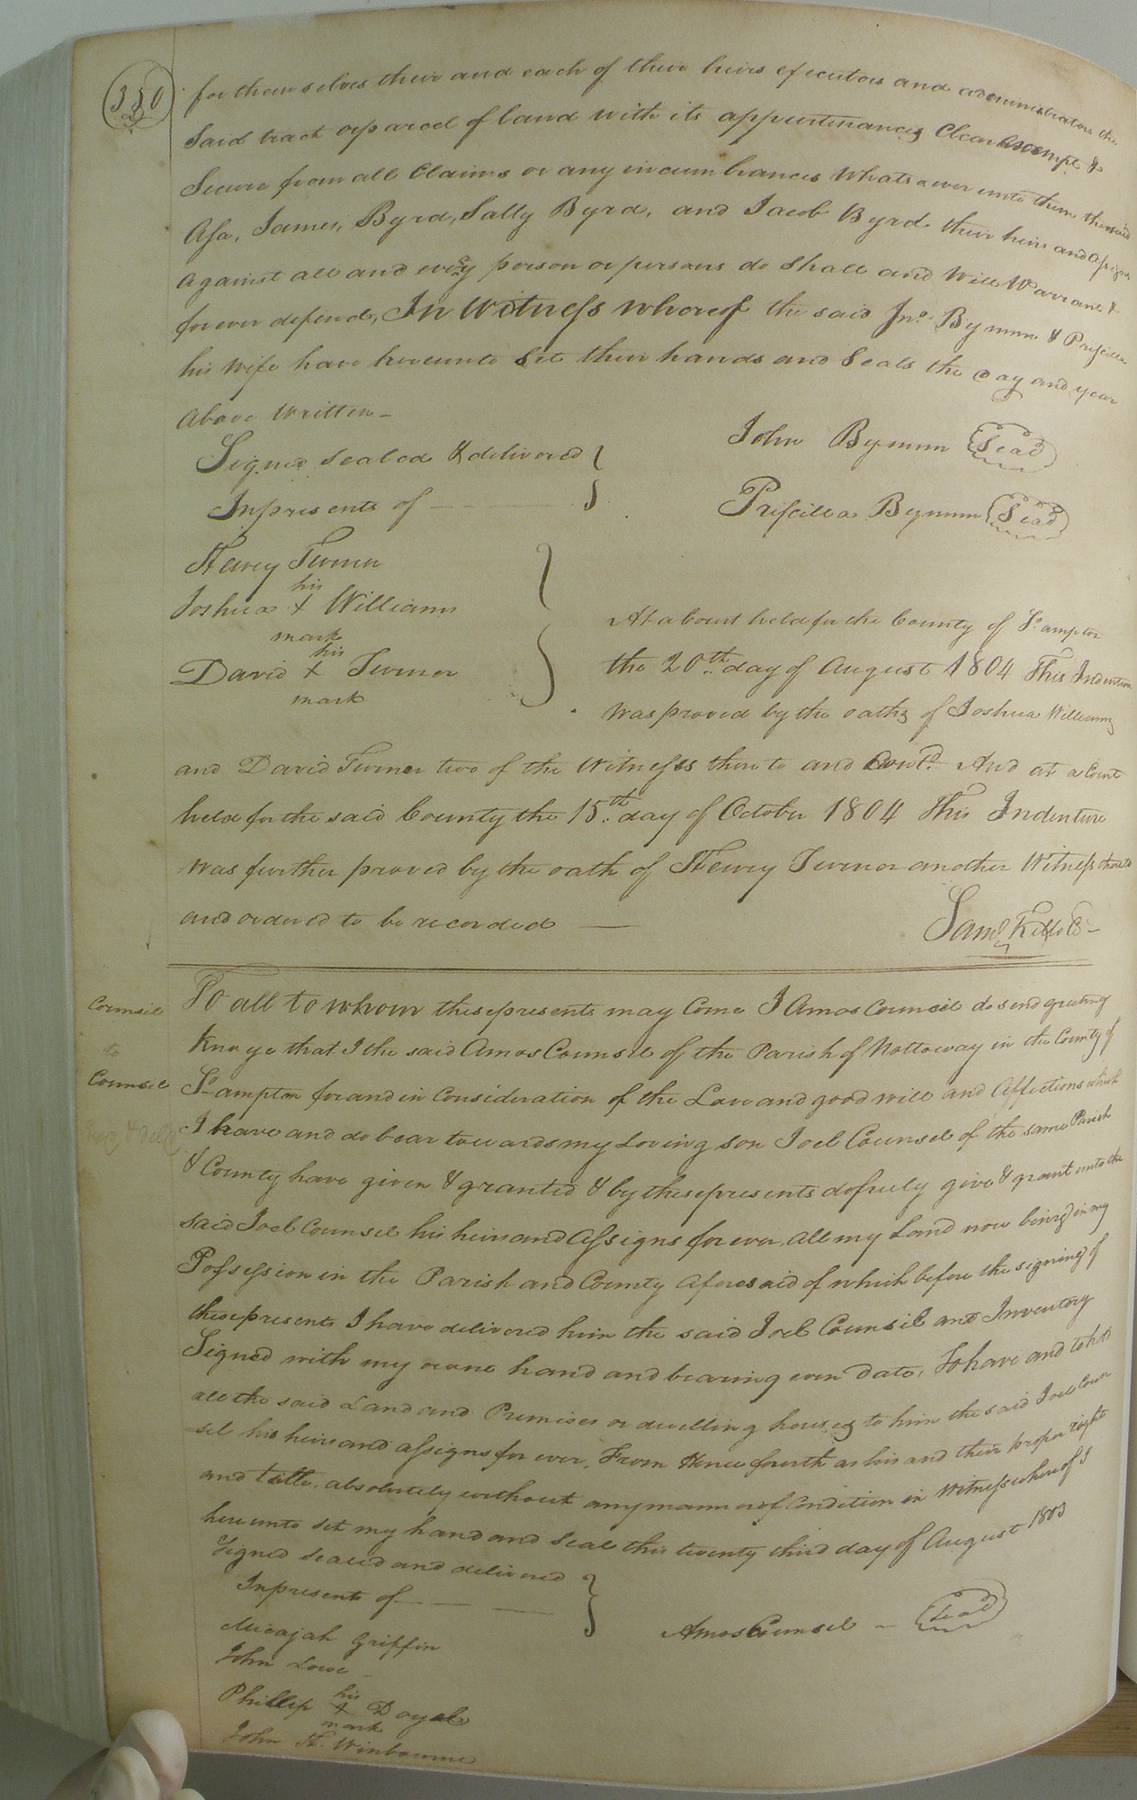 350
for themselves their and each of their heirs executors and administrators the
Said tract or parcel of land with its appurtenances Clear Exempt &
Secure from all Claims or any incumbrances Whatsoever unto them the said
Asa, James, Byrd, Sally Byrd, and Jacob Byrd their heirs and assigns
against all and every person or persons do Shall and Will Warrant &
forever defend, In Witness whereof the said Jno. Bynum & Priscilla
his Wife have hereunto Set their hands and Seals the day and year
Above Written
Signed Sealed & delivered
In presents of
John Bynum Seal
Priscilla Bynum Seal
Henry Turner
his
Joshua + Williams
mark
his
David + Turner
mark
At a Court held for the County of So. ampton
the 20th day of August 1804 This Indenture
was proved by the oaths of Joshua Williams
and David Turner two of the Witnesses thereto and Contd. And at a Court
held for the said County the 15th day of October 1804 This Indenture
was further proved by the oath of Henry Turner another Witness thereto
and ordered to be recorded
Saml. Kello C
Counsil
to
Counsil
To all to whom these presents may Come I Amos Counsil do send greeting
Know ye that I the said Amos Counsil of the Parish of Nottoway in the County of
So. ampton for and in Consideration of the Love and good will and Affections which
I have and do bear towards my Loving son Joel Counsel of the same Parish
& County have given & granted & by these presents do freely give & grant unto the
said Joel Counsel his heirs and Assigns for ever, all my Land now being in my
Possession in the Parish and County Aforesaid of which before the signing of
these presents I have delivered him the said Joel Counsil and Inventory
Signed with my owne hand and bearing even Date, To have and to hold
all the said Land and Premises or dwelling houses to him the said Joel Coun
sel his heirs and assigns for ever, From Hence fourth as his and their proper right
and title, absolutely without any manner of Condition in Witness whereof I
hereunto set my hand and Seal this twenty third day of August 1803
Signed Sealed and delivered
In presents of
Amos Counsel Seal
Micajah Griffin
John Love
his
Phillip + Doyal
mark
John H. Winbourne